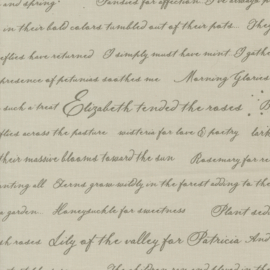 and spring Pansies for affection I've always
in their bold colors tumbled out of their pots. They
have returned I simply must have mint. I gathe
presence of petunias soothes me Morning Glories
such a treat Elizabeth tended the roses B
flies across the pasture wisteria for love & poetry lark
their massive blooms toward the sun Rosemary for re
anting all Ferns grow wildly in the forest adding to the
a garden. Honeysuckle for sweetness Plant sed
sh roses Lily of the valley for Patricia And